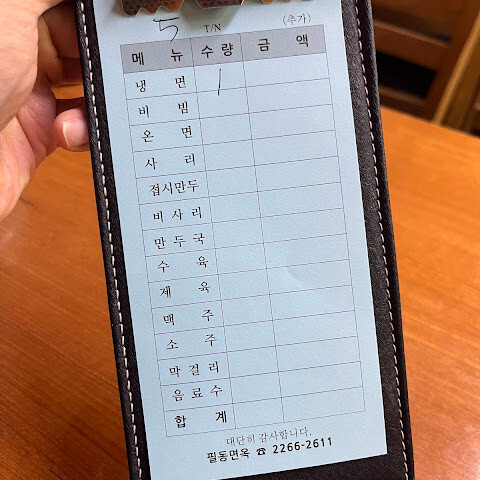 5 T/N (추가)
메 뉴 수 량 금 액
냉 면 1
비 빔
온 면
사 리
접시만두
비 사 리
만 두 국
수 육
제 육
맥 주
소 주
막 걸 리
음 료 수
합 계
대단히 감사합니다.
필동면옥 ☎ 2266-2611